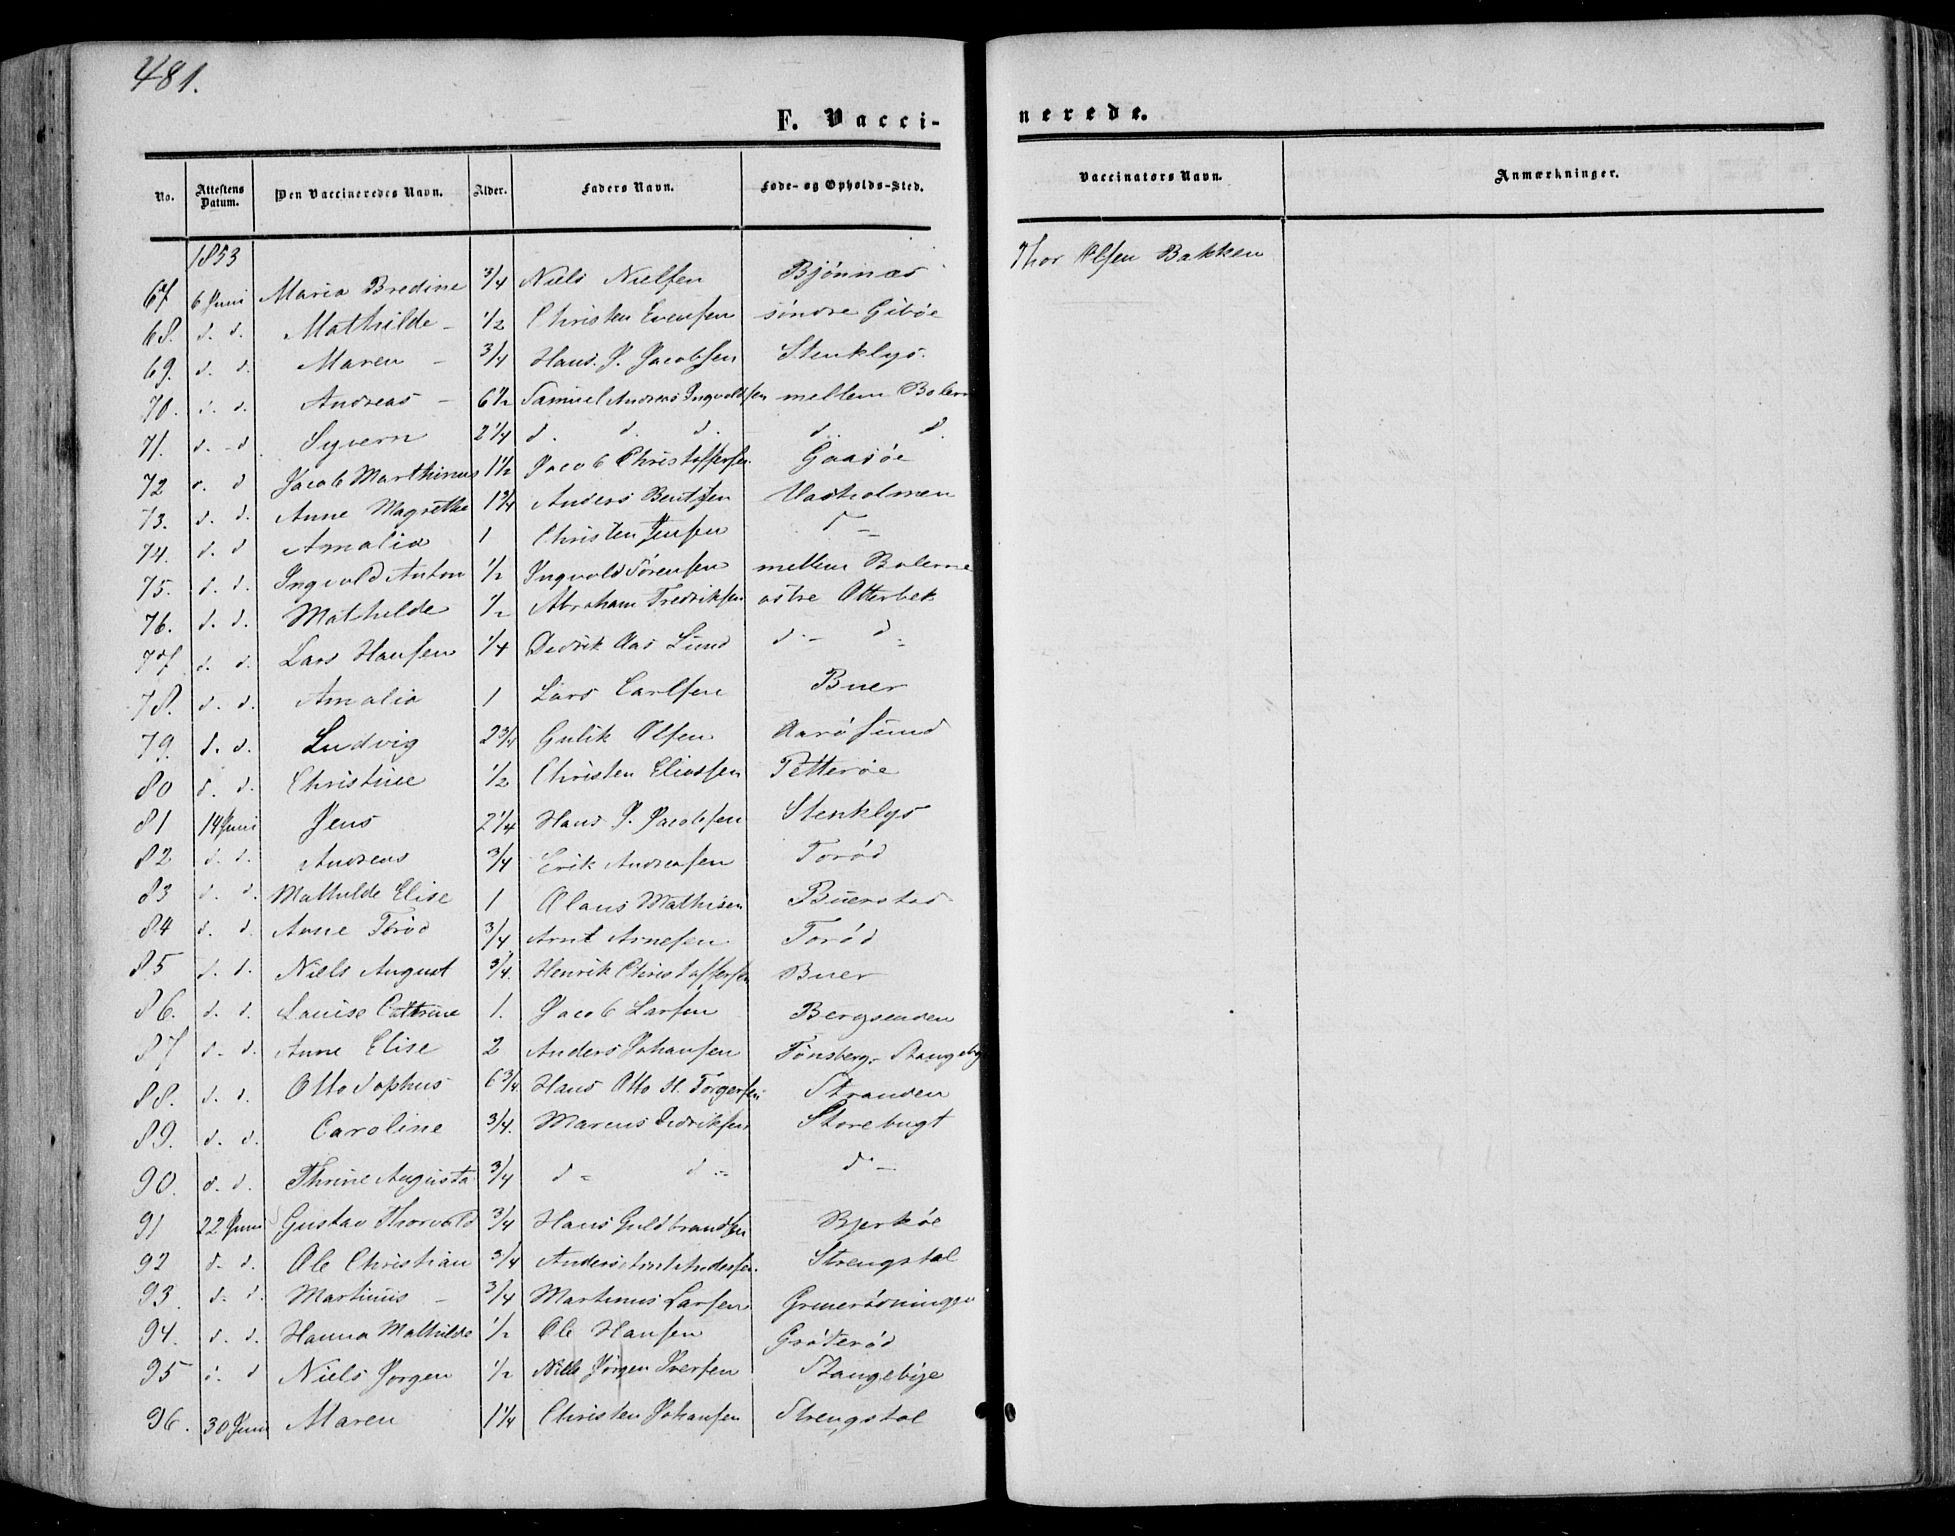 481.
F. Vacci-
nerede.
No. Attestens Datum. Den Vaccineredes Navn. Alder. Faders Navn. Føde- og Opholds-Sted.
Vaccinators Navn. Anmærkninger.
1853
67 6 Juni Maria Bredine 3/4 Niels Nielsen Bjønnes Thor Olsen Bakken
68. d. d. Mathilde - 1/2 Christen Evensen søndre Gibøe
69. d. d. Maren - 3/4 Hans P. Jacobsen Stenklys.
70. d. d. Andreas - 6 1/2 Samuel Andreas Ingvoldsen mellem Bolern
71. d. d. Syvern 2 1/4 d. d. d. d. d.
72 d. d Jacob Marthinus 1 1/2 Jacob Christoffersen Gaasøe
73. d. d. Anne Magrethe 1 3/4 Anders Bentsen Vasholmen
74. d. d Amalia 1 Christen Jensen d -
75. d. d. Ingvold Anton 1/2 Ingvold Sørensen mellem Bolerne
76. d. d. Mathilde 1/2 Abraham Fredriksen østre Otterbek
77 d. d. Lars Hansen 1/4 Dedrik Aas Lund d. - d -
78. d. d. Amalia 1 Lars Carlsen Buer
79. d. d. Ludvig 2 3/4 Gulik Olsen Aarøsund
80 d. d. Christine 1/2 Christen Eliassen Petterøe
81 14 Juni Jens 2 1/4 Hans P. Jacobsen Stenklys
82 d. d. Andreas 3/4 Erik Andreasen Torød
83 d. d. Mathilde Elise 1 Olaus Mathisen Buerstad
84 d. d. Anne Torød 3/4 Arnt Arnesen Torød
85 d. d. Niels August 3/4. Henrik Christoffersen Buer
86. d. d. Louise Cathrine 1. Jacob Larsen Bergsenden
87 d. d. Anne Elise 2 Anders Johansen Tønsberg, Stangeby
88. d. d. Otto Sophus 6 3/4. Hans Otto H. Torgersen Stranden
89. d. d. Caroline 3/4. Marcus Dedriksen Storebugt
90. d. d. Thrine Augusta 3/4 d - d - d -
91 22 Juni Gustav Thorvald 3/4 Hans Guldbrandsen Bjerkøe
92 d. d. Ole Christian 3/4 Anders Arnt Andersen. Strengsdal
93. d. d. Martinus - 3/4 Martinus Larsen
94. d. d. Hanna Mathilde 1/2 Ole Hansen Grøterød
95 d. d Niels Jørgen 1/2 Niels Jørgen Iversen Stangebye
96. 30 Juni Maren 1 1/4 Christen Johansen Strengsdal